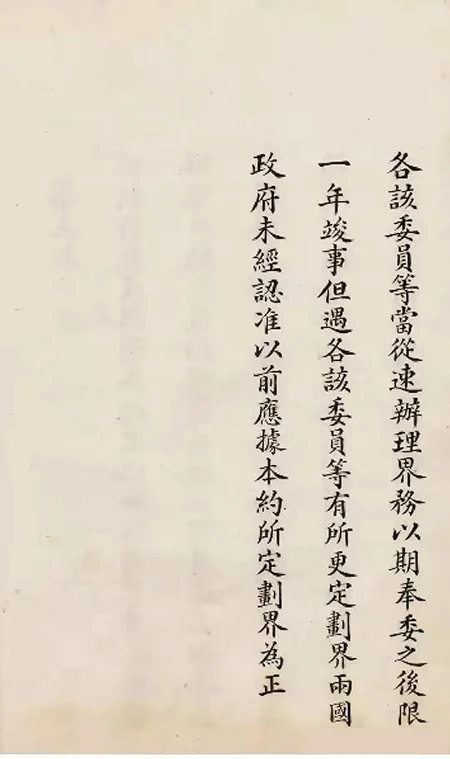 各該委員等當從速辦理界務以期奉委之後限
一年竣事但遇各該委員等有所更定劃界兩國
政府未經認准以前應據本約所定劃界為正